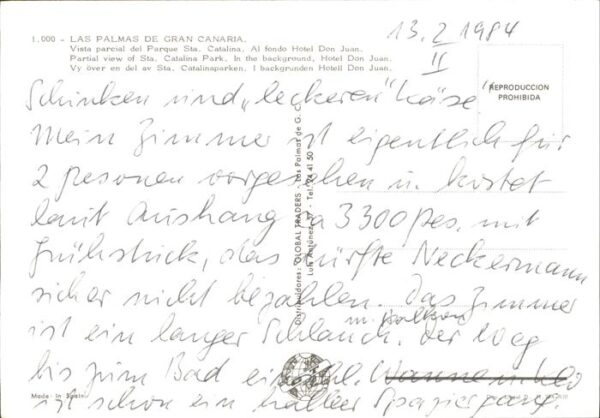 1.000 - LAS PALMAS DE GRAN CANARIA.
Vista parcial del Parque Sta. Catalina. Al fondo Hotel Don Juan.
Partial view of Sta. Catalina Park. In the background, Hotel Don Juan.
Vy över en del av Sta. Catalinaparken. I bakgrunden Hotell Don Juan.
13.2 1984
II
REPRODUCCION
PROHIBIDA
Schinken und „leckeren" Käse
Mein Zimmer ist eigentlich für
2 Pesonen vorgesehen u. kostet
laut Aushang ca 3300 Pes. mit
Frühstück, das dürfte Neckermann
sicher nicht bezahlen. Das Zimmer
ist ein langer Schlauch, m. Balkon der Weg
bis zum Bad
ist schon ein halber Spazierg.
Distribuidores: GLOBAL TRADERS - Las Palmas de G. C.
Luis Antúnez, - Tel. 24 41 50
Made in Spain